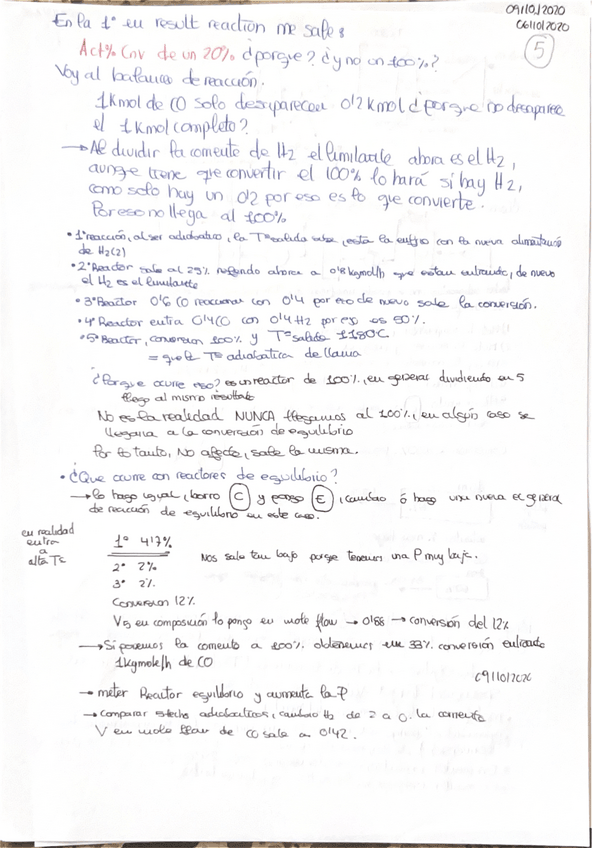 09/10/2020
06/10/2020
5
En la 1ª en result reaction me sale:
Act% Cnv de un 20% ¿porque? ¿y no un 100%?
Voy al balance de reacción.
1 Kmol de CO solo desaparecen 0'2 kmol ¿porque no desaparece
el 1 Kmol completo?
→ Al dividir la corriente de H2 el limitante ahora es el H2,
aunque tiene que convertir el 100% lo hará si hay H2,
como solo hay un 0'2 por eso es lo que convierte.
Por eso no llega al 100%
• 1ª reacción, al ser adiabatico, la Tª salida sube, esta la enfrio con la nueva alimentación
de H2(2)
• 2º Reactor sale al 25% metiendo ahora a 0'8 kgmol/h que estan entrando, de nuevo
el H2 es el limitante
• 3º Reactor 0'6 CO reaccionar con 0'4 por eso de nuevo sale la conversión.
• 4º Reactor entra 0'4 CO con 0'4 H2 por eso es 50%.
• 5º Reactor, conversion 100% y Tª salida 1180C
= que la Tª adiabática de llama
¿Porque ocurre eso? es un reactor de 100%, en general dividiendo en 5
llego al mismo resultado
No es la realidad NUNCA llegamos al 100%, en algún caso se
llegaria a la conversión de equilibrio
Por lo tanto, No afecta, sale la misma.
• ¿Que ocurre con reactores de equilibrio?
→ lo hago igual, borro C y pongo E, cambio ó hago una nueva ec general
de reacción de equilibrio en este caso.
en realidad
entra
a
alta Tª
1º 4'17%
2º 2%
3º 2%
Nos sale tan bajo porque tenemos una P muy baja.
Conversion 12%
V5 en composición lo pongo en mole flow → 0'88 → conversión del 12%
→ Si ponemos la corriente a 100% obtenemos un 33% conversión entrando
1 kgmole/h de CO
09/10/2020
→ meter Reactor equilibrio y aumenta la P
→ comparar adiabaticos, cambio H2 de 2 a 0. la corriente
V en mole flow de CO sale a 0'42.